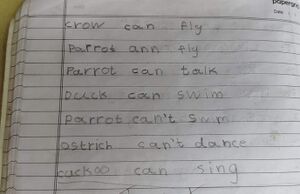 papergrid
crow can fly
Parrot ann fly
Parrot can talk
Duck can swim
parrot can't swm
ostrich can't dance
cuckoo can sing